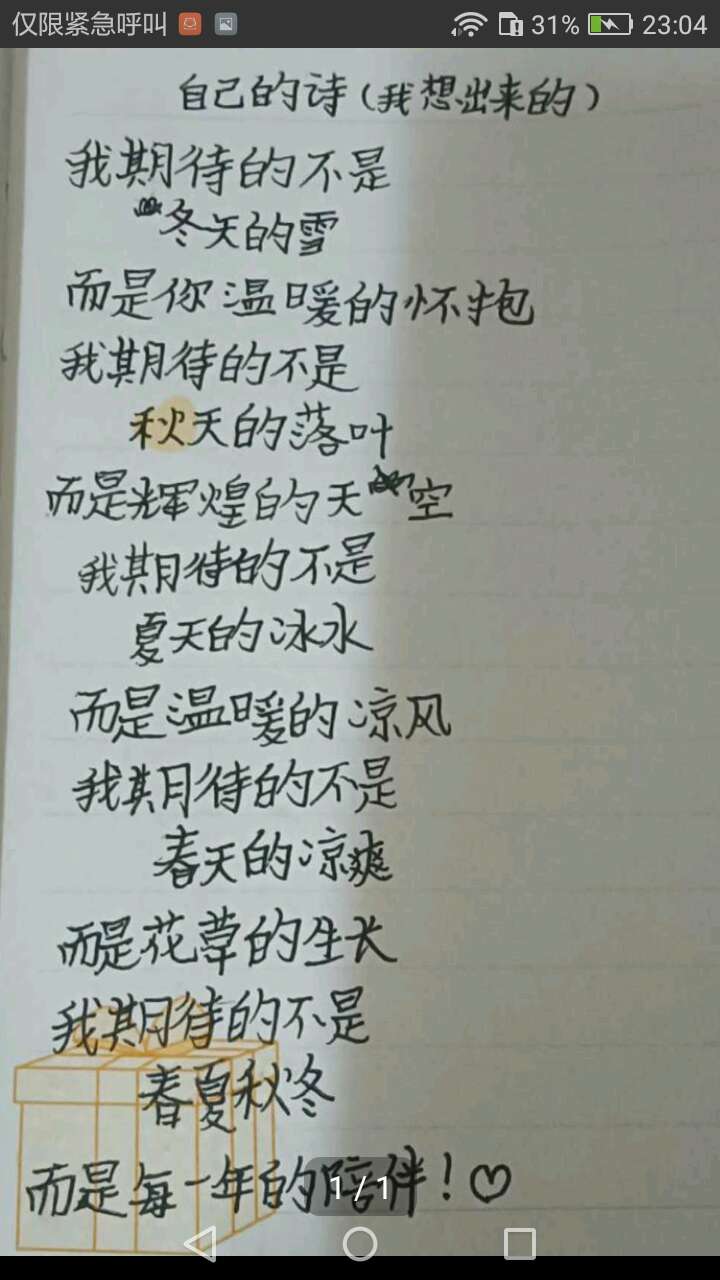 仅限紧急呼叫 31% 23:04
自己的诗(我想出来的)
我期待的不是
冬天的雪
而是你温暖的怀抱
我期待的不是
秋天的落叶
而是辉煌的天空
我期待的不是
夏天的冰水
而是温暖的凉风
我期待的不是
春天的凉爽
而是花草的生长
我期待的不是
春夏秋冬
而是每一年的陪伴!♡
1/1